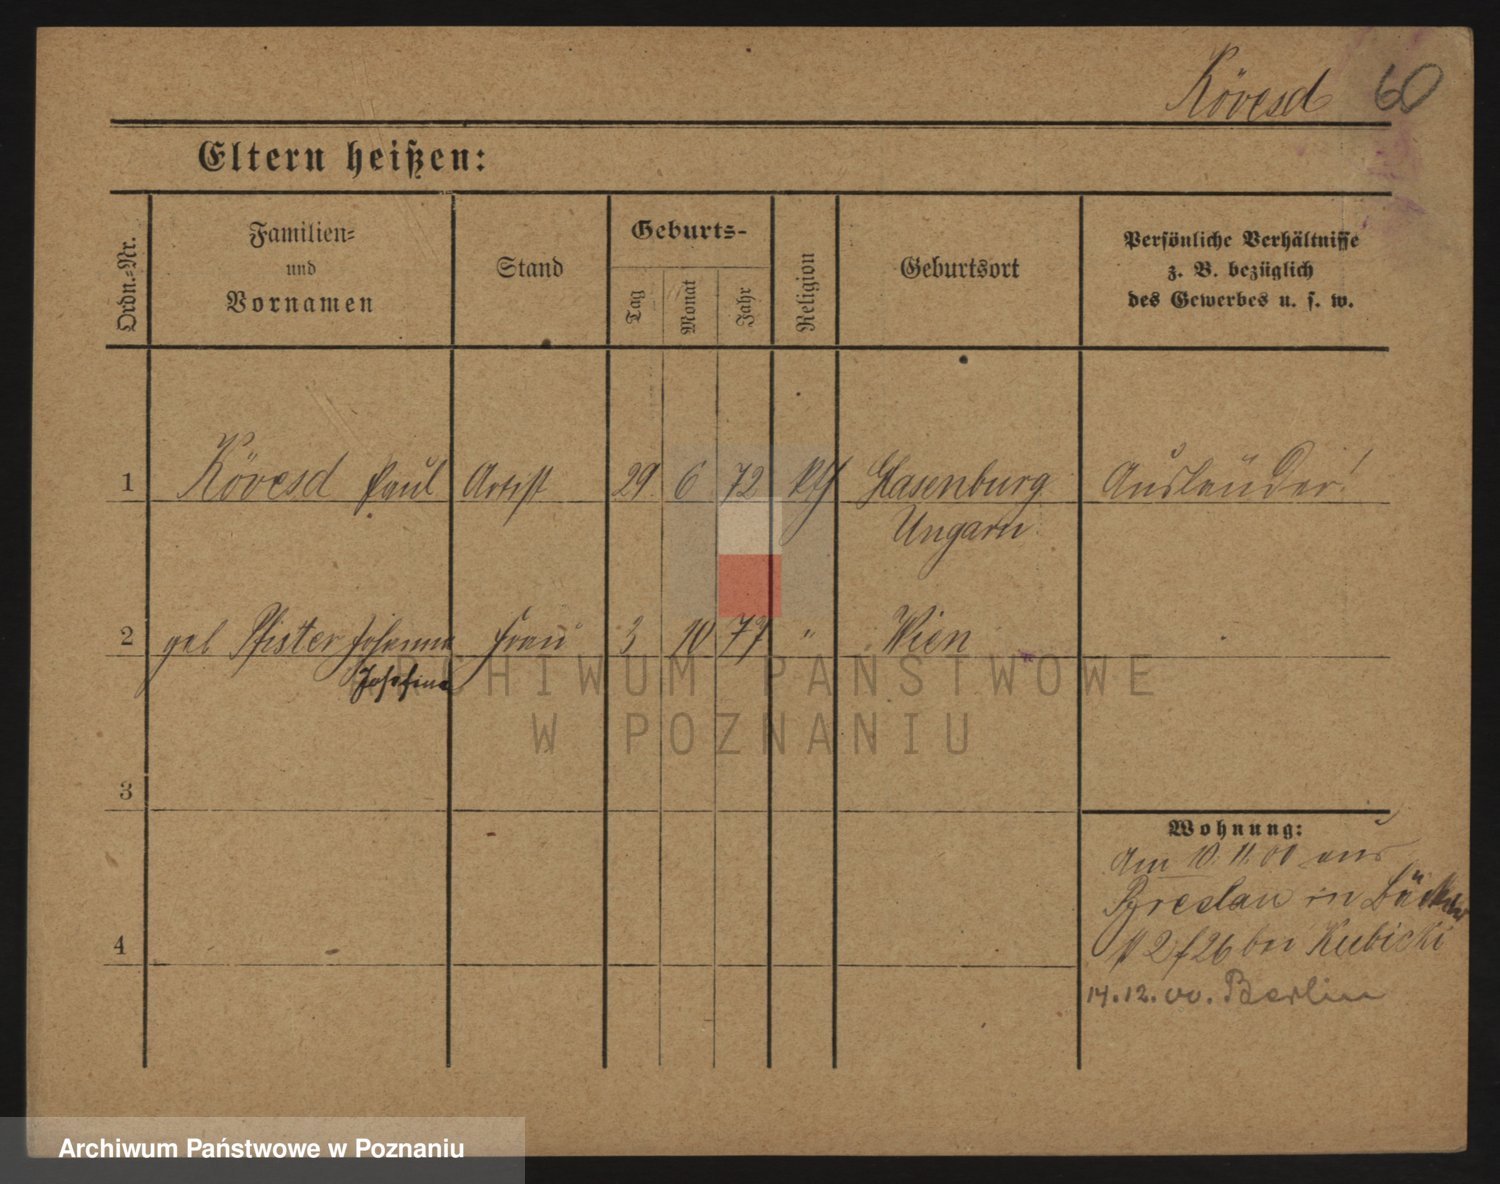 Kövesd 60
Eltern heißen:
Ordn.-Nr.
Familien-
und
Vornamen
Stand
Geburts-
Tag
Monat
Jahr
Religion
Geburtsort
Persönliche Verhältnisse
z. B. bezüglich
des Gewerbes u. s. w.
1 Kövesd Paul Artist 29 6 72 Hasenburg Ausländer!
Ungarn
2 geb Pfister Johanna Frau 3 10 77 " Wien
Josefina
ARCHIWUM PAŃSTWOWE
W POZNANIU
3
Wohnung:
Am 10.11.00 aus
Breslau in Bäcker
2 / 26 bei Kubicki
4
14.12.00. Berlin
Archiwum Państwowe w Poznaniu